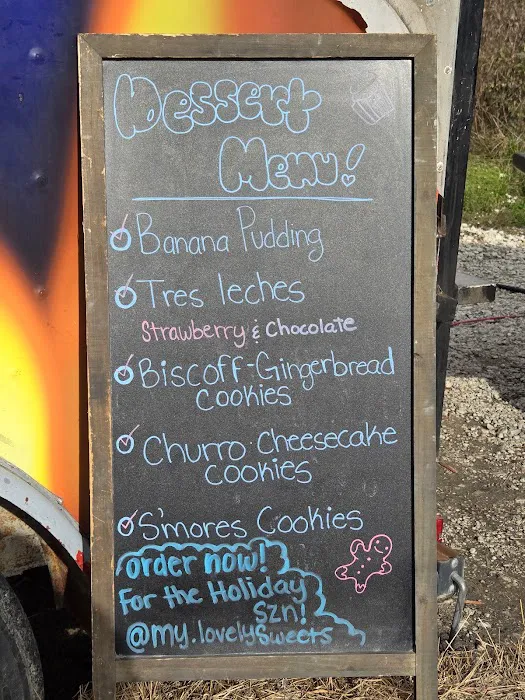 Dessert
Menu!
Banana Pudding
Tres leches
Strawberry & Chocolate
Biscoff-Gingerbread
cookies
Churro Cheesecake
cookies
S'mores Cookies
order now!
For the Holiday
SZN!
@my.lovelysweets